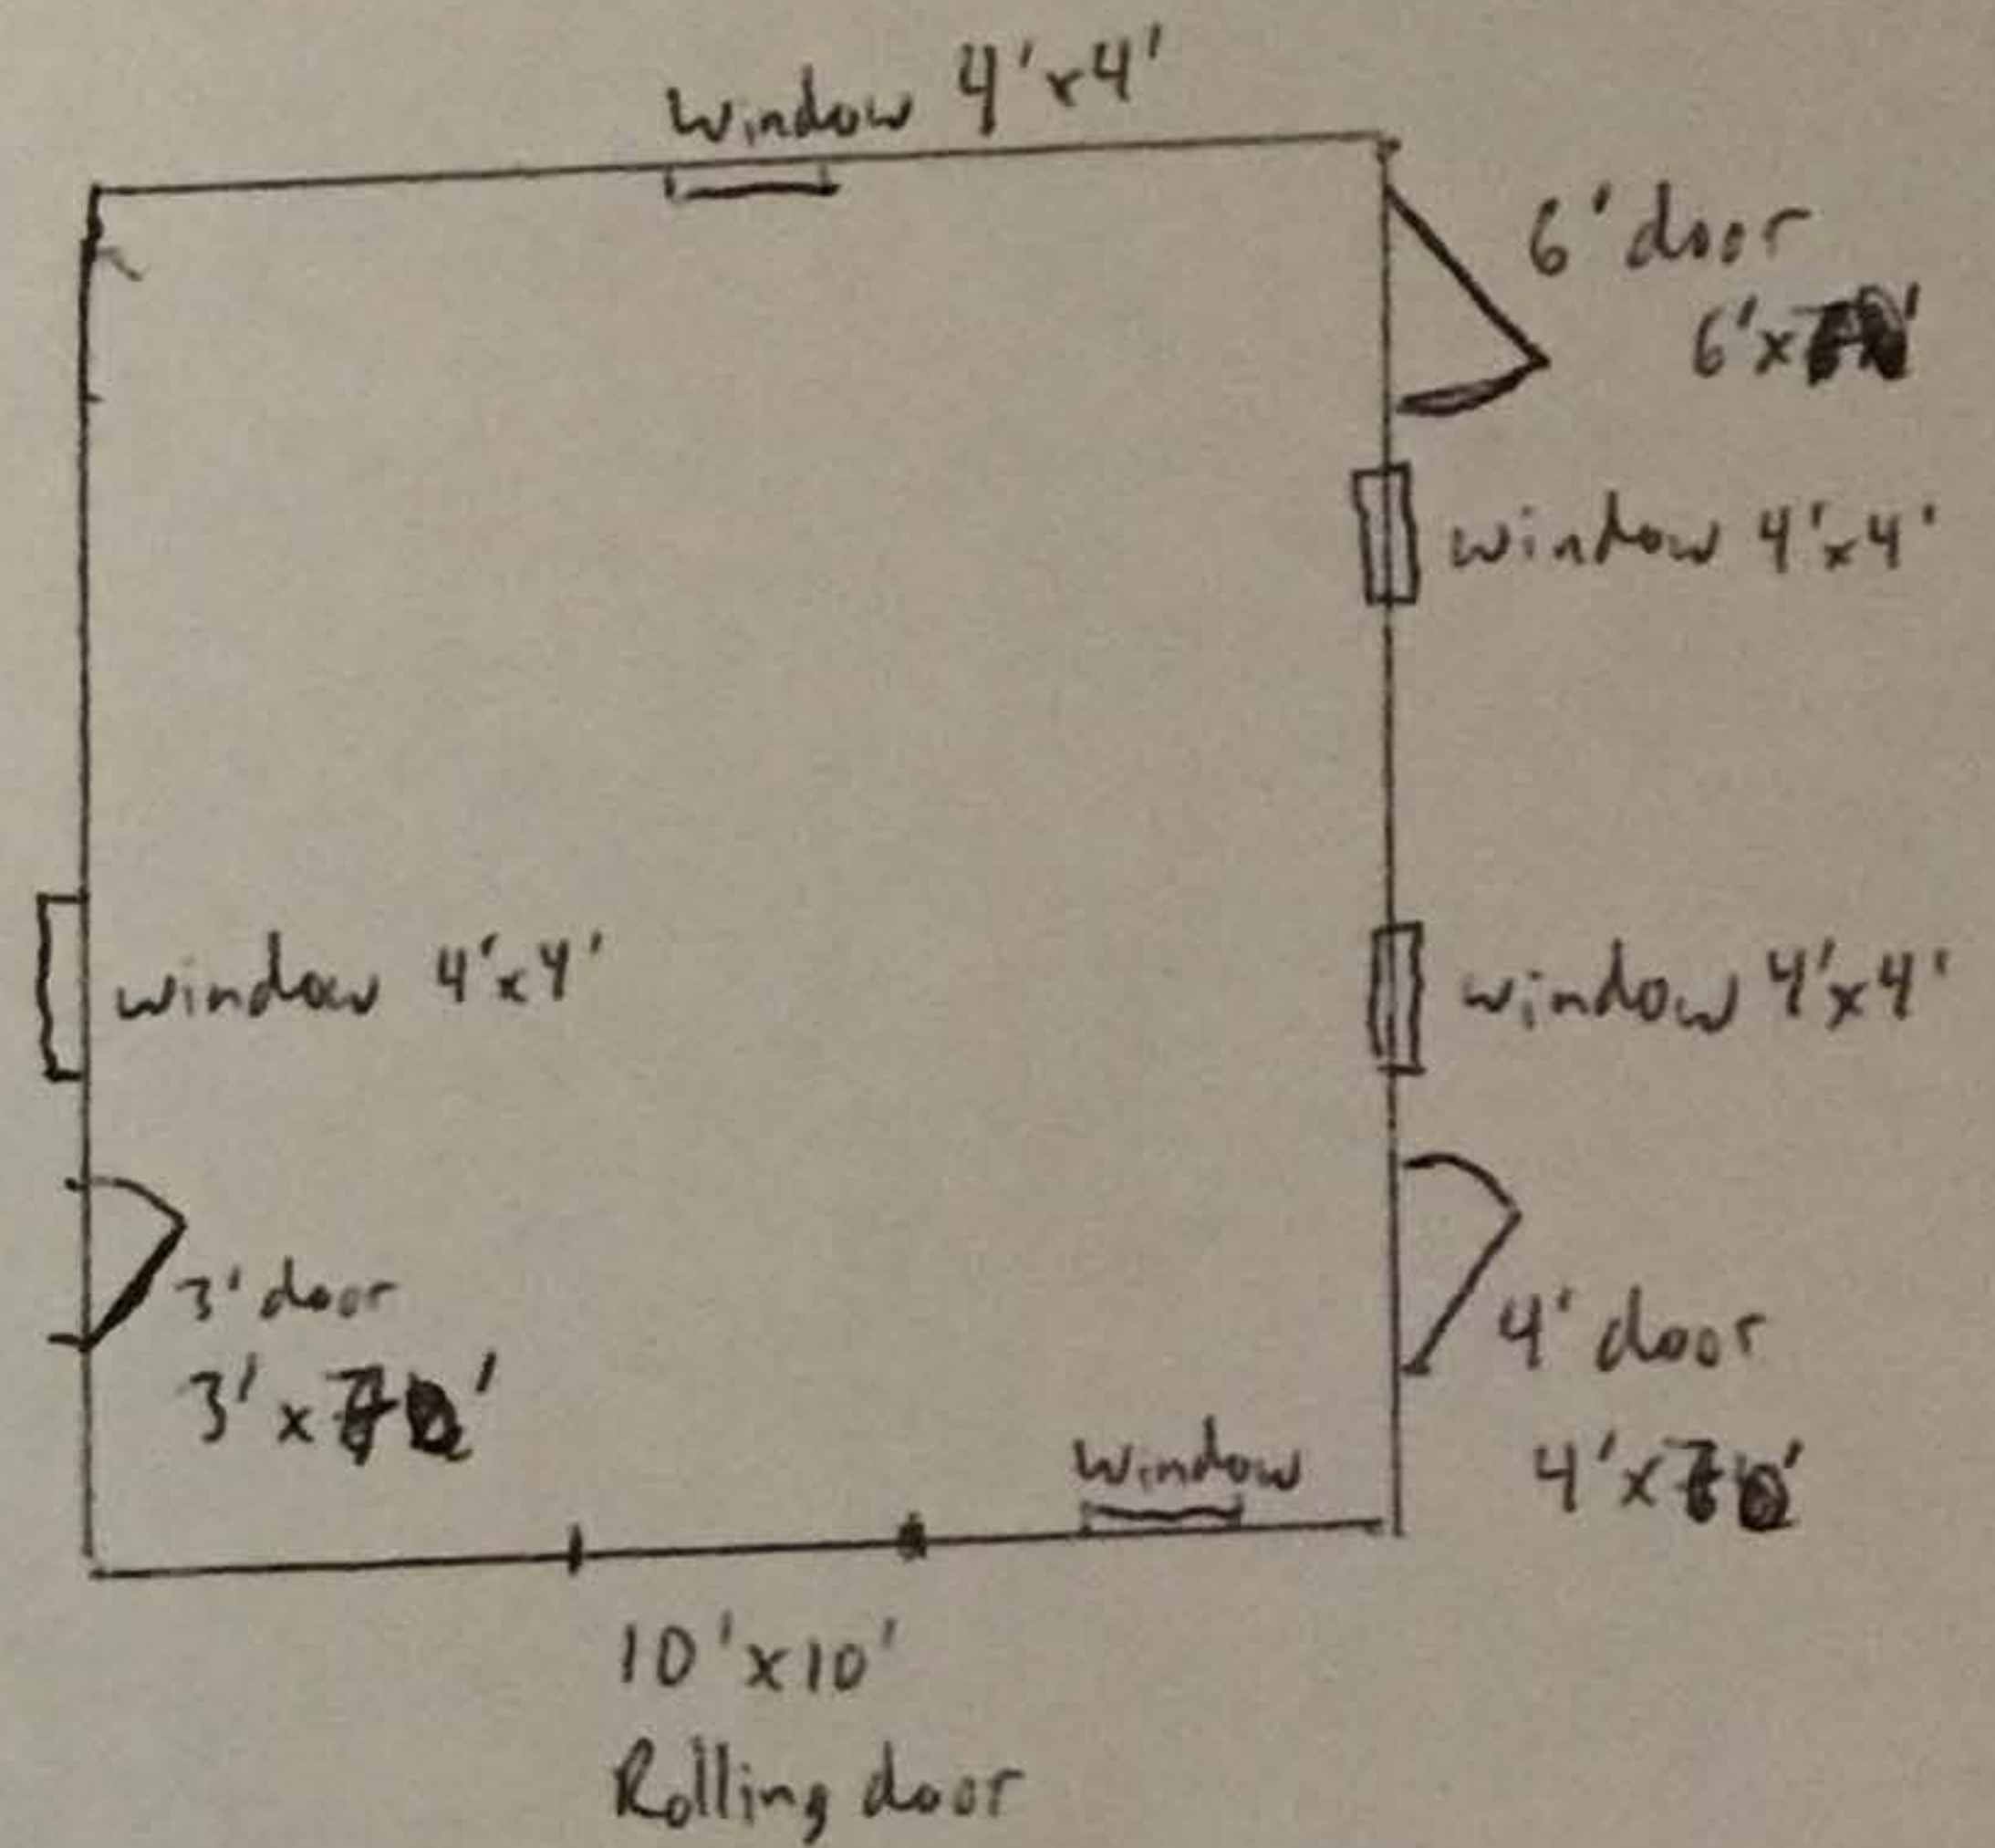 window 4'x4'
6' door
6'x
window 4'x4'
window 4'x4'
window 4'x4'
3' door
3' x
4' door
4'x
window
10'x10'
Rolling door